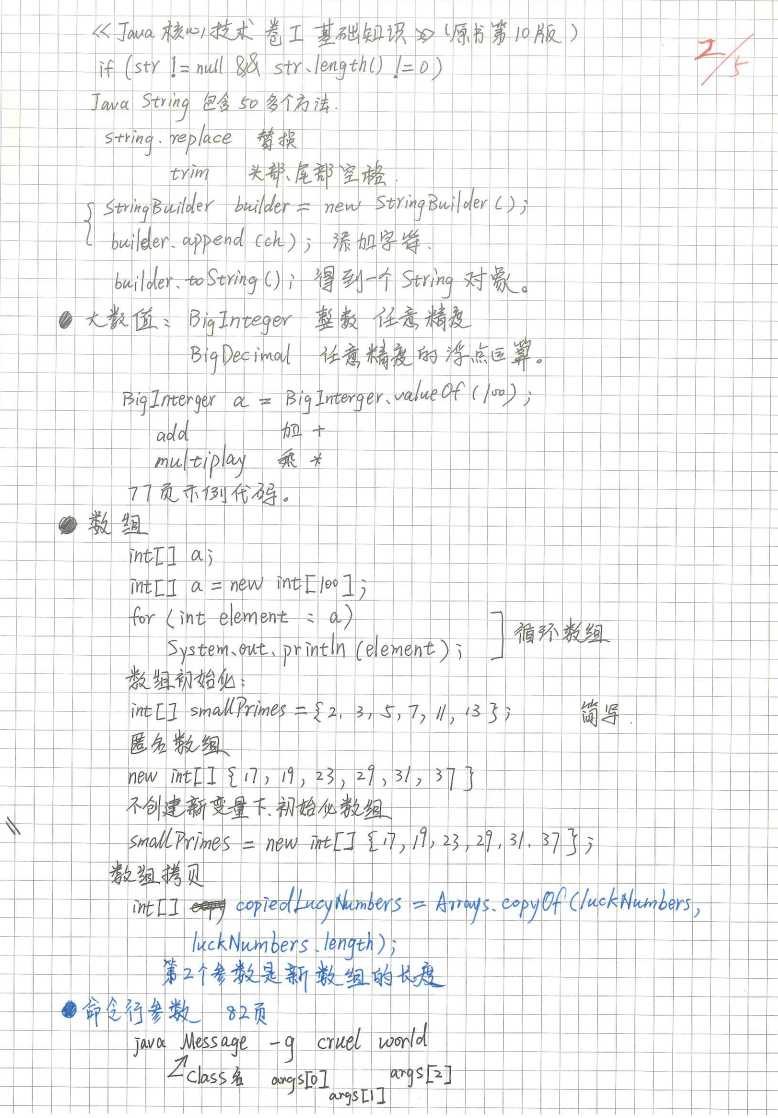 《Java 核心技术 卷I 基础知识》(原书第10版)
2/5
if (str != null && str.length() != 0)
Java String 包含 50 多个方法.
string.replace 替换
trim 头部、尾部空格.
StringBuilder builder = new StringBuilder();
builder.append(ch); 添加字符.
builder.toString(); 得到一个 String 对象。
大数值: BigInteger 整数 任意精度
BigDecimal 任意精度的浮点运算。
BigInterger a = BigInterger.valueOf(100);
add 加 +
multiplay 乘 *
77页示例代码。
数组
int[] a;
int[] a = new int[100];
for (int element : a)
System.out.println(element);
循环数组
数组初始化:
int[] smallPrimes = {2, 3, 5, 7, 11, 13}; 简写.
匿名数组
new int[] {17, 19, 23, 29, 31, 37}
不创建新变量下、初始化数组
smallPrimes = new int[] {17, 19, 23, 29, 31. 37};
数组拷贝
int[] copy copiedLucyNumbers = Arrays.copyOf(luckNumbers,
luckNumbers.length);
第2个参数是新数组的长度
命令行参数 82页
java Message -g cruel world
class名 args[0] args[1] args[2]